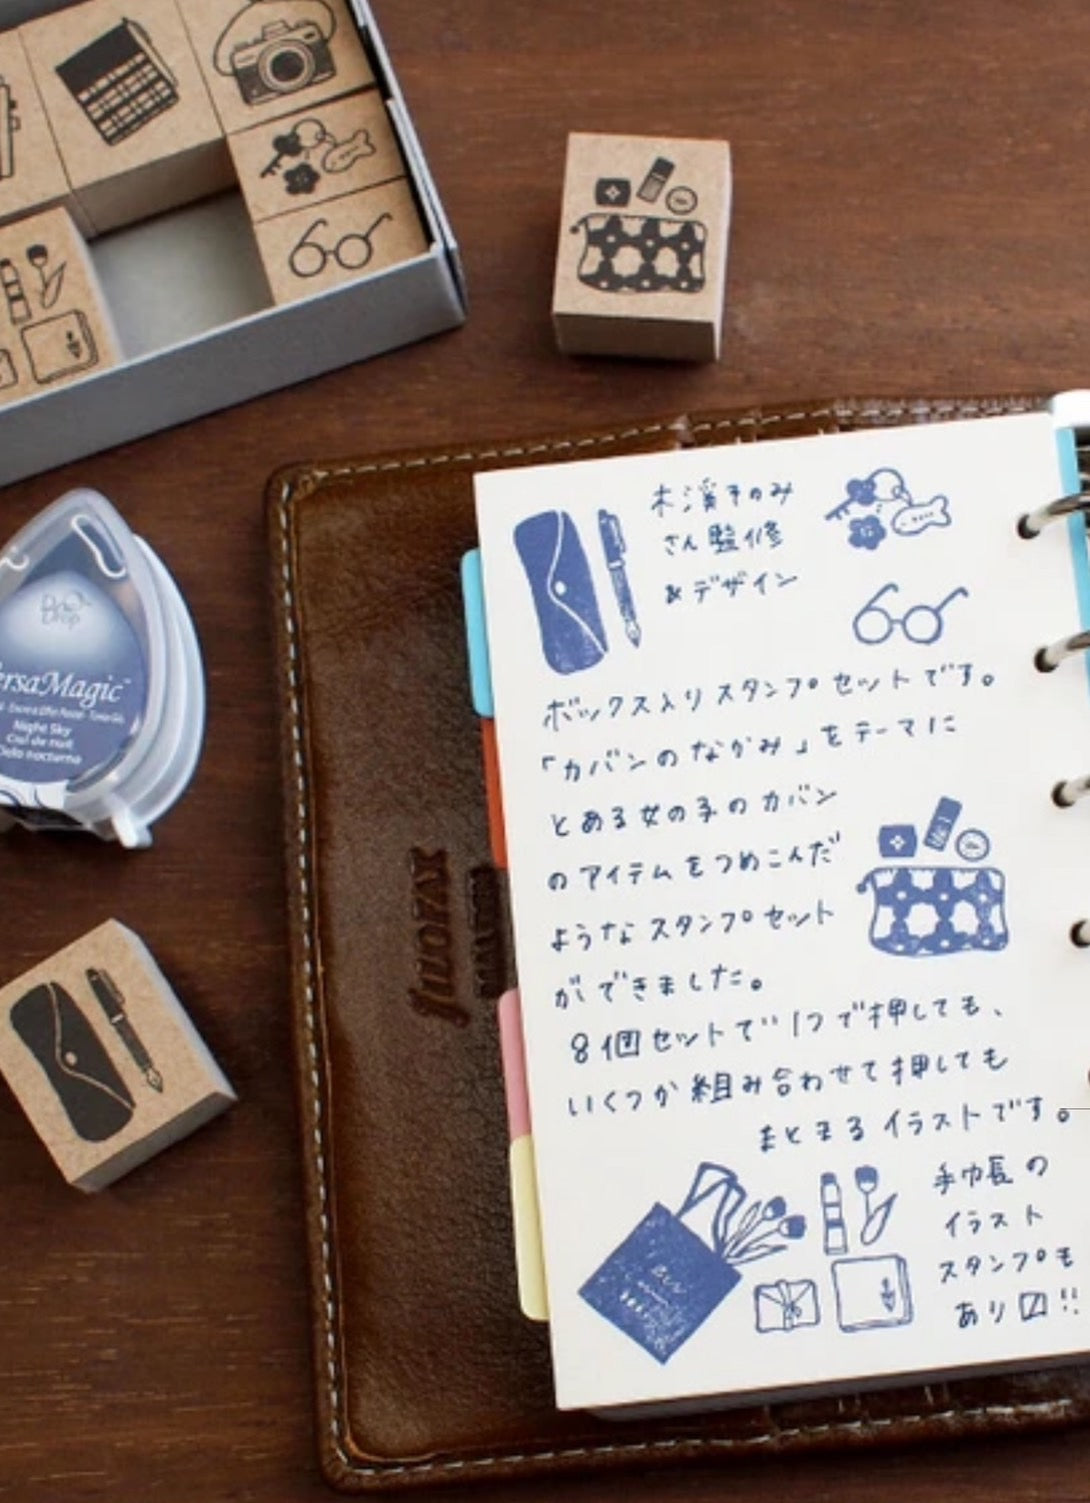 木濱すのみ
さん監修
&デザイン
ボックス入りスタンプセットです。
「カバンのなかみ」をテーマに
とある女の子のカバン
のアイテムをつめこんだ
ようなスタンプセット
ができました。
8個セットで1つで押しても、
いくつか組み合わせて押しても
まとまるイラストです。
手帳の
イラスト
スタンプも
あり〼!!
VersaMagic
Night Sky
Ciel de nuit
Cielo nocturno
Dew
Drop